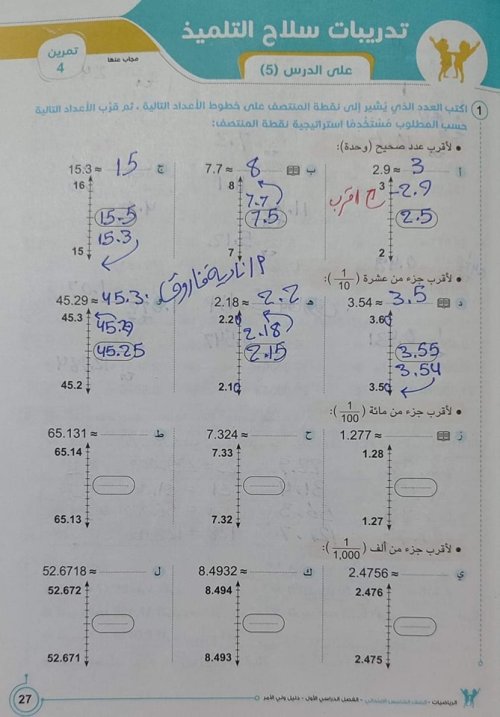 تدريبات سلاح التلميذ
على الدرس (5)
تمرين
4
مجاب عنها
1 اكتب العدد الذي يُشير إلى نقطة المنتصف على خطوط الأعداد التالية ، ثم قرِّب الأعداد التالية
حسب المطلوب مُستَخدِمًا استراتيجية نقطة المنتصف:
• لأقرب عدد صحيح (وحدة):
أ 2.9 ≈ 3
3
2.9
2.5
2
اقرب
ب 7.7 ≈ 8
8
7.7
7.5
7
ج 15.3 ≈ 15
16
15.5
15.3
15
• لأقرب جزء من عشرة (1/10):
د 3.54 ≈ 3.5
3.60
3.55
3.54
3.50
هـ 2.18 ≈ 2.2
2.20
2.18
2.15
2.10
و 45.29 ≈ 45.3
45.3
45.29
45.25
45.2
• لأقرب جزء من مائة (1/100):
ز 1.277 ≈
1.28
1.27
ح 7.324 ≈
7.33
7.32
ط 65.131 ≈
65.14
65.13
• لأقرب جزء من ألف (1/1,000):
ي 2.4756 ≈
2.476
2.475
ك 8.4932 ≈
8.494
8.493
ل 52.6718 ≈
52.672
52.671
الرياضيات - الصف الخامس الابتدائي - الفصل الدراسي الأول - دليل ولي الأمر
27